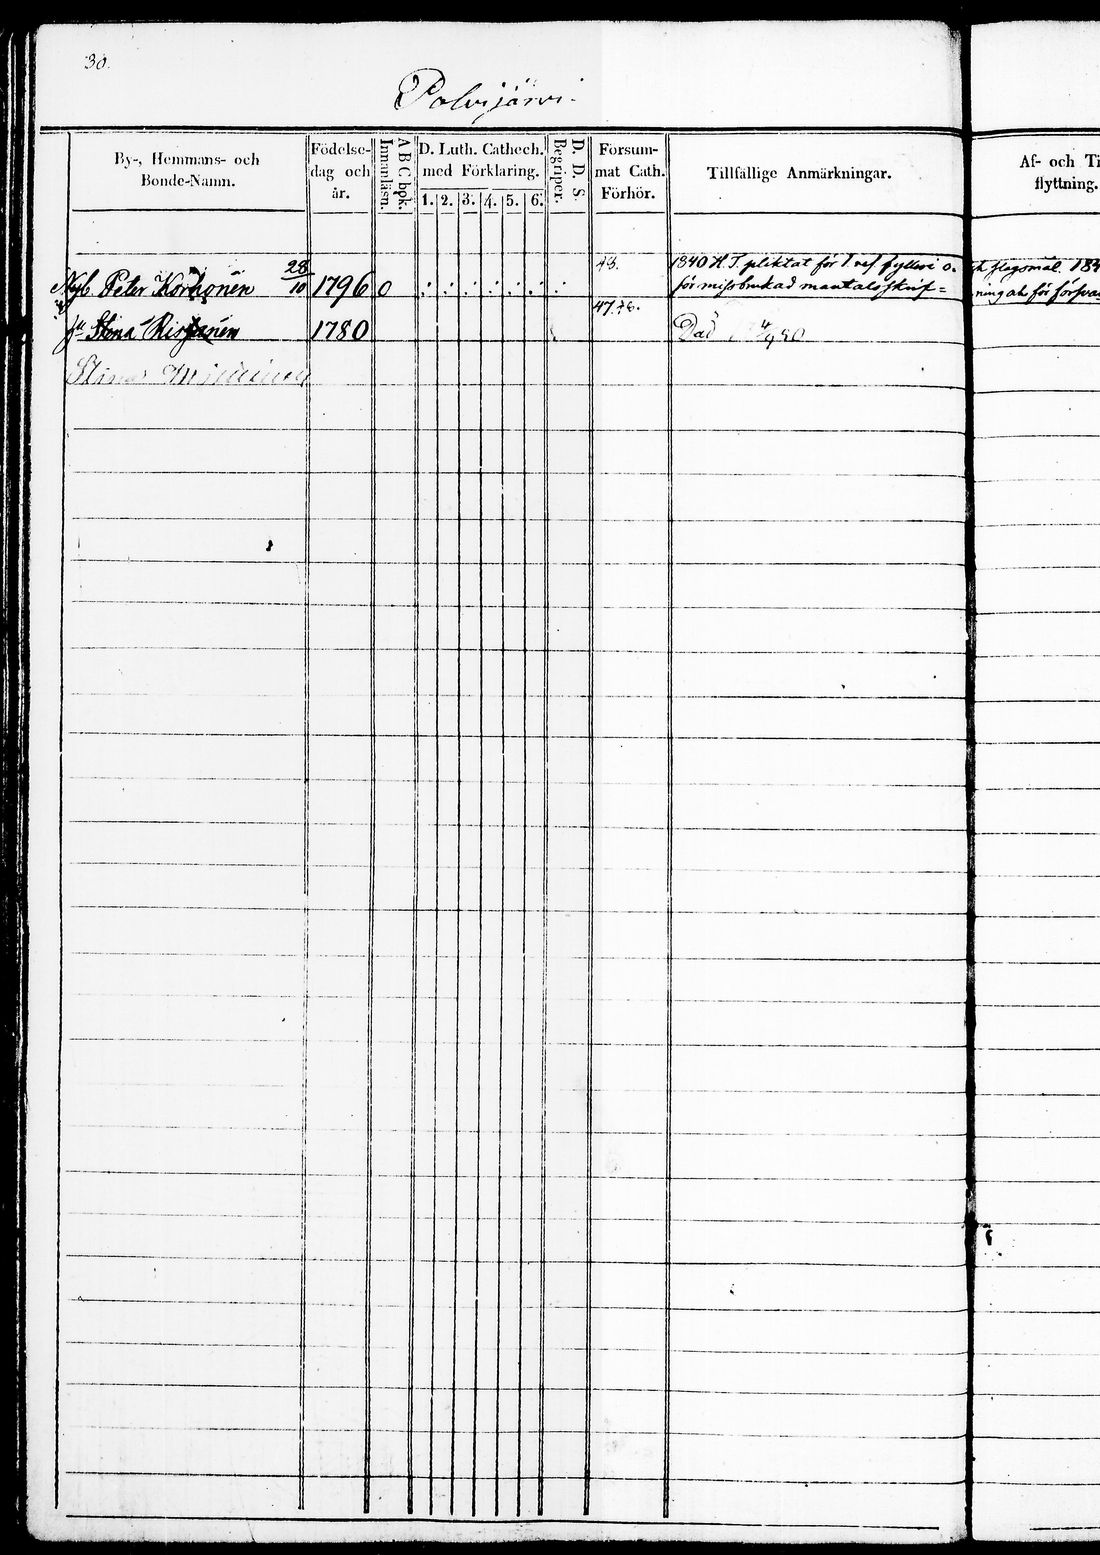 30.
Polvijärvi.
By-, Hemmans- och Bonde-Namn.
Födelse-dag och år.
A B C bok.
Innanläsn.
D. Luth. Cathech. med Förklaring.
1. 2. 3. 4. 5. 6.
D. D. S.
Begriper.
Försum-mat Cath. Förhör.
Tillfällige Anmärkningar.
Af- och Ti
flyttning.
Nyb. Peter Korhonen 28/10 1796 0 43. 1840 H. T. pliktat för 1 res fylleri o.
för missbrukad mantalsskrif= ning
47.
Stina 1780 Död
Stina
slagsmål. 184